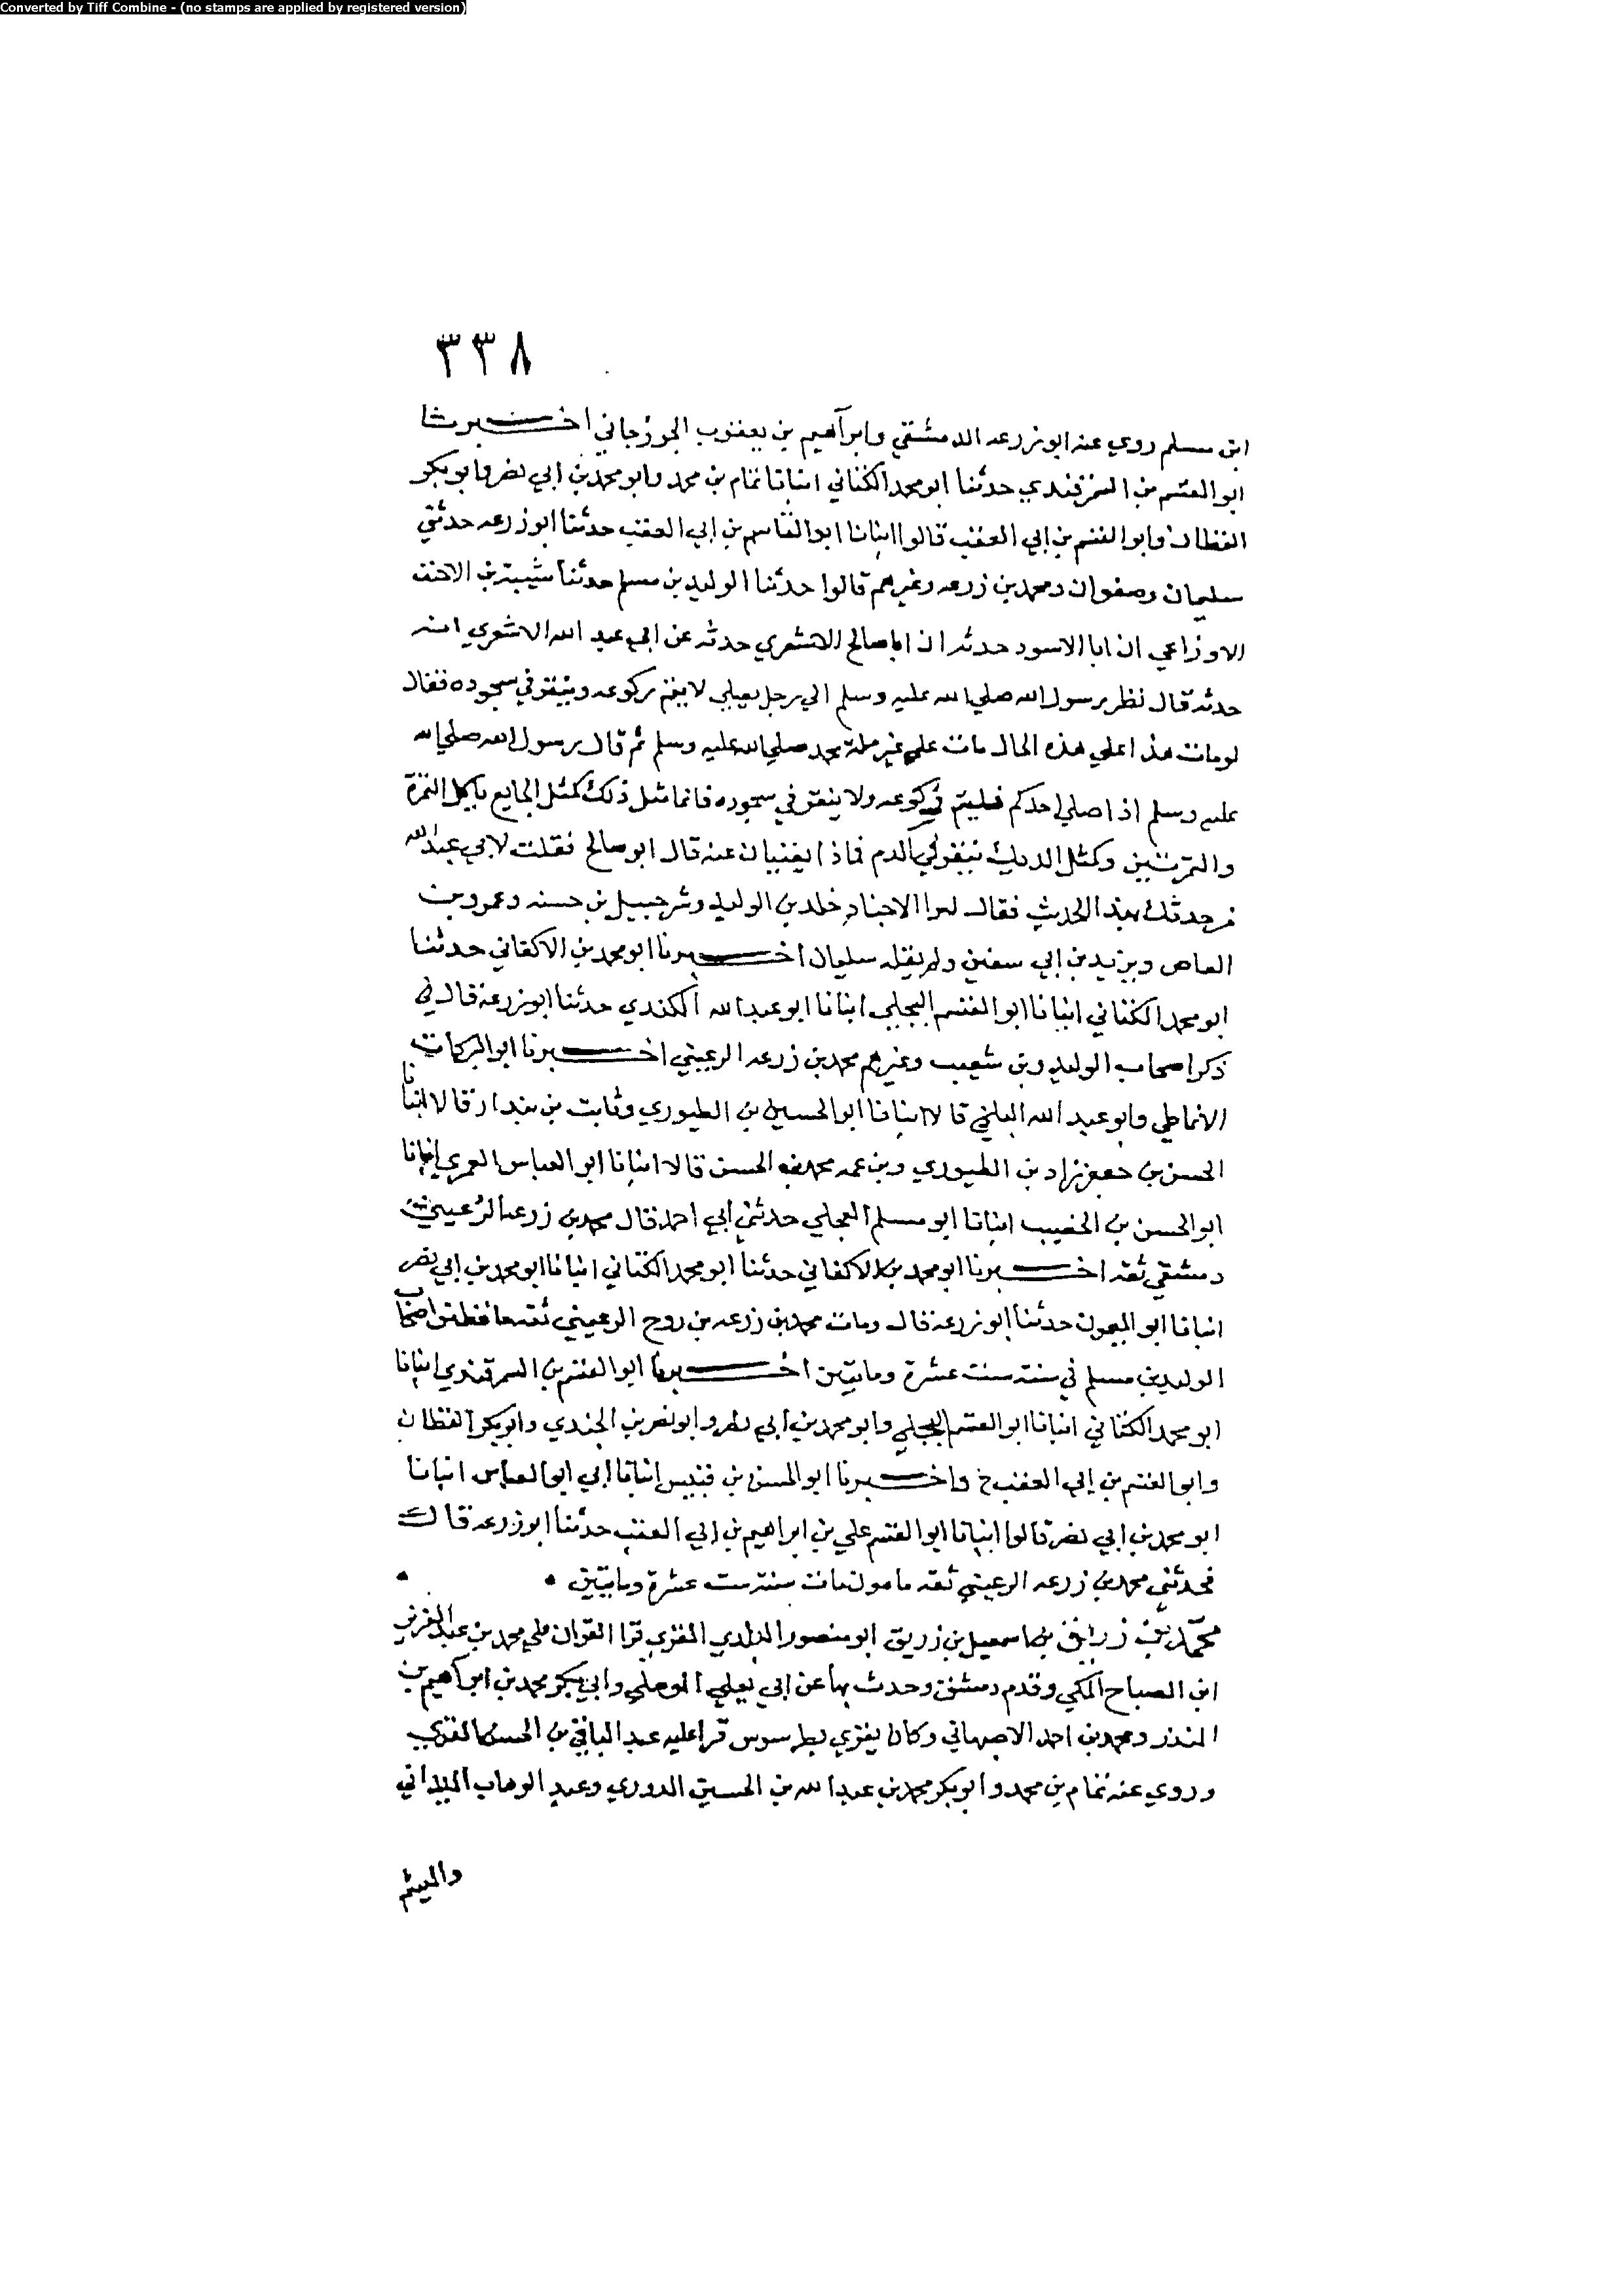 Converted by Tiff Combine - (no stamps are applied by registered version)
٣٣٨
ابن مسلم روي عنه ابو زرعه الدمشقي وابراهيم بن يعقوب الجوزجاني اخبرنا
ابو القسم بن السمرقندي حدثنا ابو محمد الكتاني انبانا تمام بن محمد وابو محمد بن ابي نصر وابو بكر
القطان وابو القسم بن ابي العقب قالوا انبانا ابو القاسم بن ابي العقب حدثنا ابو زرعه حدثني
سليمان وصفوان ومحمد بن زرعه وغيرهم قالوا حدثنا الوليد بن مسلم حدثنا شيبة بن الاحنف
الاوزاعي ان ابا الاسود حدثه ان ابا صالح الاشعري حدثه عن ابي عبد الله الاشعري انه
حدثه قال نظر رسول الله صلي الله عليه وسلم الي رجل يصلي لا يتم ركوعه وينقر في سجوده فقال
لو مات هذا علي هذه الحال مات علي غير ملة محمد صلي الله عليه وسلم ثم قال رسول الله صلي الله
عليه وسلم اذا صلي احدكم فليتم ركوعه ولا ينقر في سجوده فانما مثل ذلك كمثل الجايع ياكل التمرة
والتمرتين وكمثل الديك ينقر في الدم فماذا يغنيان عنه قال ابو صالح فقلت لابي عبد الله
من حدثك بهذا الحديث فقال امرا الاجناد خلد بن الوليد وشرحبيل بن حسنه وعمرو بن
العاص ويزيد بن ابي سفين ولم يقله سليمان اخبرنا ابو محمد بن الاكفاني حدثنا
ابو محمد الكتاني انبانا ابو القسم البجلي انبانا ابو عبد الله الكندي حدثنا ابو زرعة قال في
ذكر اصحاب الوليد وبن شعيب وغيرهم محمد بن زرعه الرعيني اخبرنا ابو البركات
الانماطي وابو عبد الله البلخي قالا انبانا ابو الحسين بن الطيوري وثابت بن بندار قالا انبانا
الحسن بن جعفر زاد بن الطيوري وبن عمه محمد بن الحسن قالا انبانا ابو العباس العمري انبانا
ابو الحسن بن الخصيب انبانا ابو مسلم العجلي حدثني ابي احمد قال محمد بن زرعه الرعيني
دمشقي ثقه اخبرنا ابو محمد بن الاكفاني حدثنا ابو محمد الكتاني انبانا ابو محمد بن ابي نصر
انبانا ابو الميمون حدثنا ابو زرعة قال ومات محمد بن زرعه بن روح الرعيني ثقه حافظ من اصحاب
الوليد بن مسلم في سنة ست عشرة وماتين اخبرنا ابو القسم بن السمرقندي انبانا
ابو محمد الكتاني انبانا ابو القسم البجلي وابو محمد بن ابي نصر وابو نصر بن الجندي وابو بكر القطان
وابو القسم بن ابي العقب ح واخبرنا ابو الحسن بن قبيس انبانا ابي ابو العباس انبانا
ابو محمد بن ابي نصر قالوا انبانا ابو القسم علي بن ابراهيم بن ابي العقب حدثنا ابو زرعه قال
فحدثني محمد بن زرعه الرعيني ثقه مامون مات سنة ست عشرة وماتين
محمد بن زريق بن اسمعيل بن زريق ابو منصور البلدي المقري قرا القران علي محمد بن عبد العزيز
ابن الصباح المكي وقدم دمشق وحدث بها عن ابي يعلي الموصلي وابي بكر محمد بن ابراهيم بن
المنذر ومحمد بن احمد الاصبهاني وكان يقري بطرسوس قرا عليه عبد الباقي بن الحسن المقري
وروي عنه تمام بن محمد وابو بكر محمد بن عبد الله بن الحسين الدوري وعبد الوهاب الميداني
والهيثم